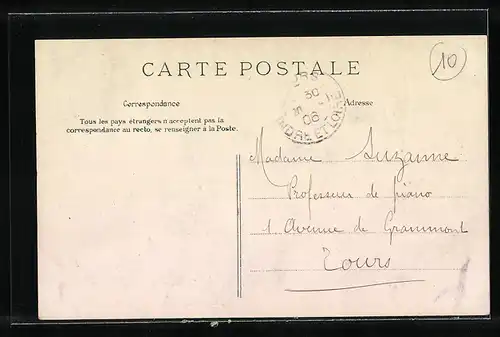 10
CARTE POSTALE
Correspondance
Adresse
Tous les pays étrangers n'acceptent pas la
correspondance au recto, se renseigner à la Poste.
30
06
INDRE ET LOIRE
Madame Suzanne
Professeur de piano
1 Avenue de Grammont
Tours